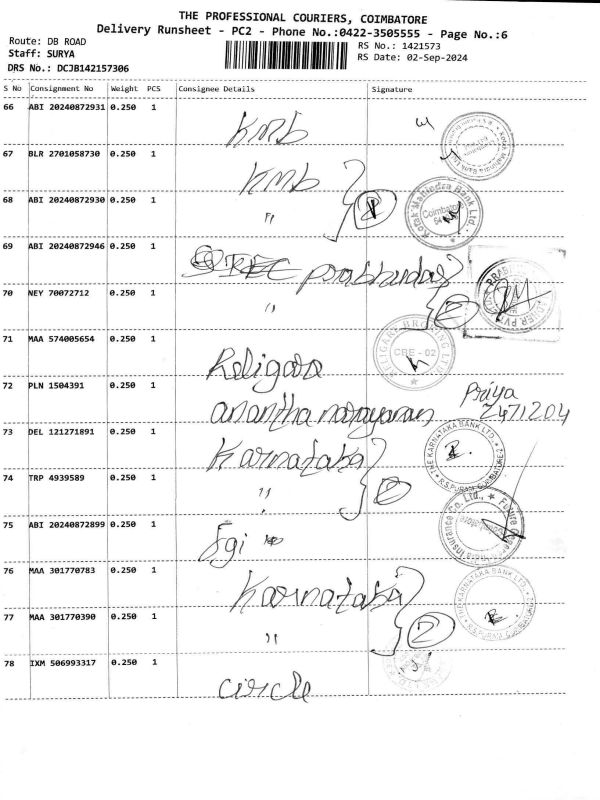 THE PROFESSIONAL COURIERS, COIMBATORE
Delivery Runsheet - PC2 - Phone No.:0422-3505555 - Page No.:6
Route: DB ROAD
RS No.: 1421573
Staff: SURYA
RS Date: 02-Sep-2024
DRS No.: DCJB142157306
S No Consignment No Weight PCS Consignee Details Signature
66 ABI 20240872931 0.250 1 KMB
67 BLR 2701058730 0.250 1 KMB
68 ABI 20240872930 0.250 1 "
Kotak Mahindra Bank Ltd.
69 ABI 20240872946 0.250 1 prabhudas
70 NEY 70072712 0.250 1 " 2
71 MAA 574005654 0.250 1 Religare
RELIGARE BROKING LTD
CBE - 02
72 PLN 1504391 0.250 1 anantha narayanan Priya
2471204
73 DEL 121271891 0.250 1 Karnataka
THE KARNATAKA BANK LTD.
R.S.PURAM, COIMBATORE-2
74 TRP 4939589 0.250 1 " 2
75 ABI 20240872899 0.250 1 Fgi
Insurance Co. Ltd.,
76 MAA 301770783 0.250 1 Karnataka
THE KARNATAKA BANK LTD.
R.S.PURAM, COIMBATORE
77 MAA 301770390 0.250 1 " 2
78 IXM 506993317 0.250 1 circle